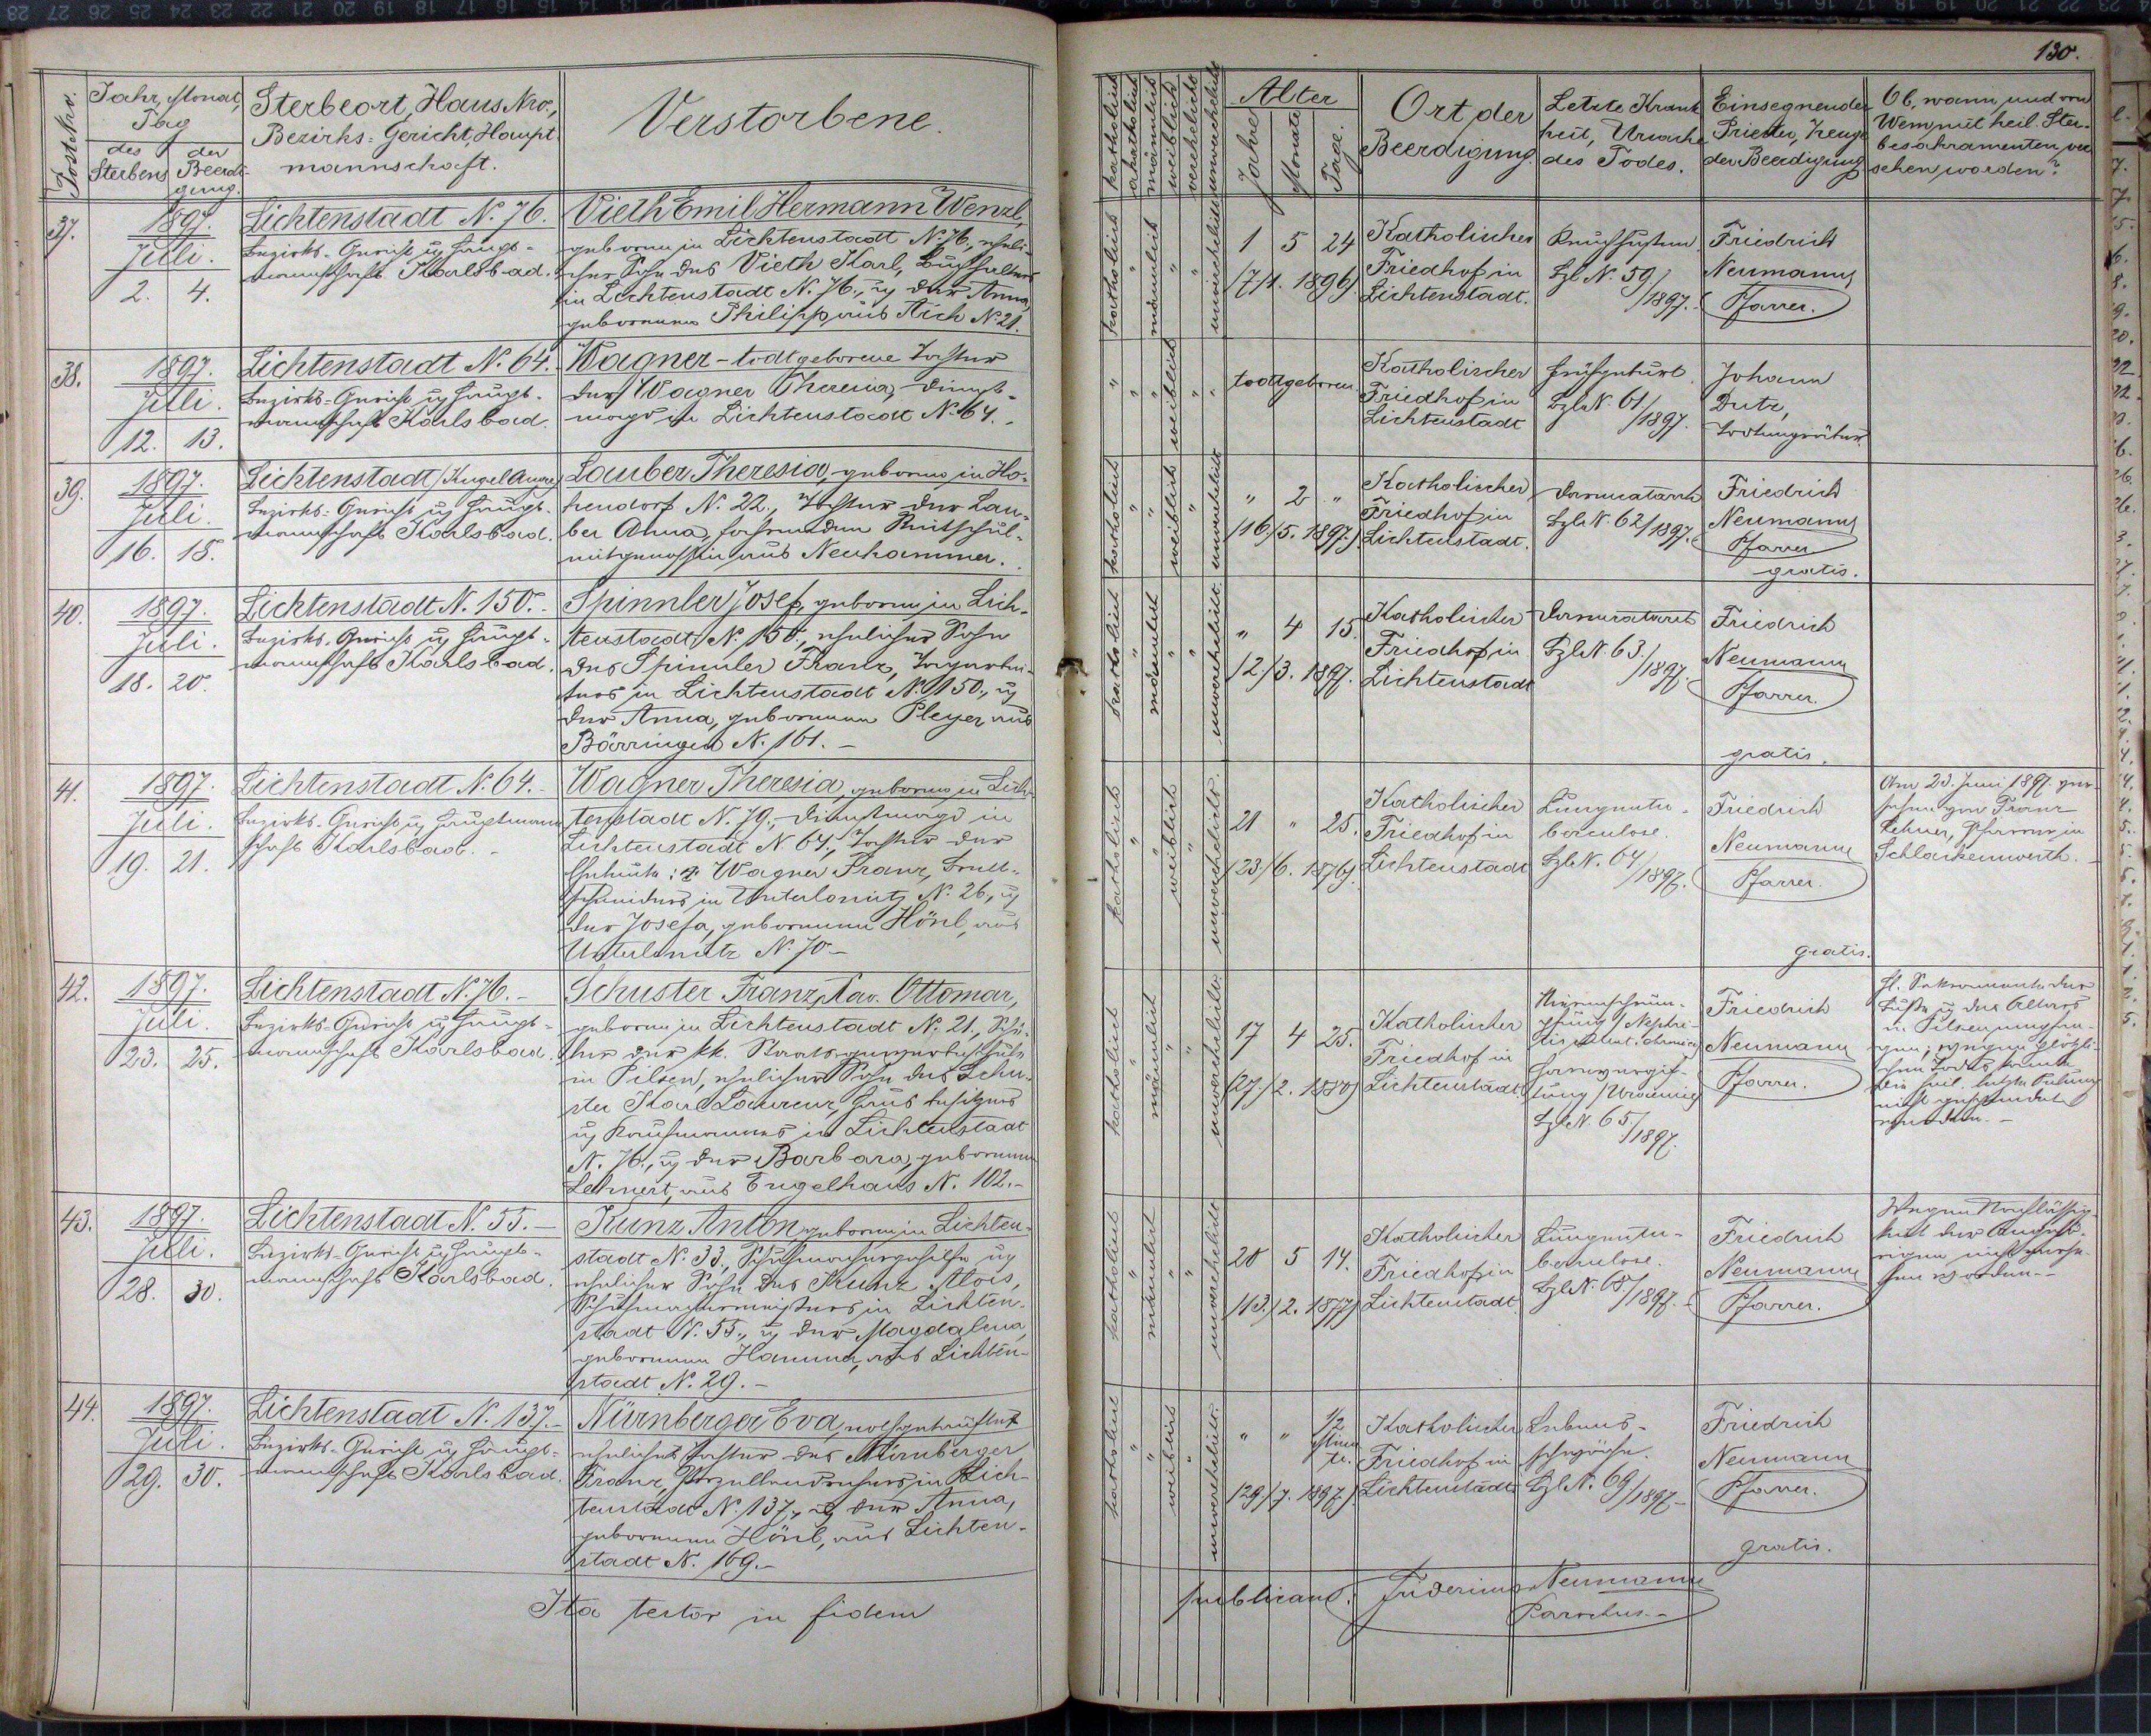 130.
Post-Nro.
Jahr, Monat,
Tag
des
Sterbens
der
Beerdi-
gung.
Sterbeort, Haus-Nro.,
Bezirks-Gericht, Haupt-
mannschaft.
Verstorbene.
katholisch
akatholisch
männlich
weiblich
verehelicht
unverehelicht
Alter
Jahre
Monate
Tage.
Ort der
Beerdigung.
Letzte Krank-
heit, Ursache
des Todes.
Einsegnender
Priester, Zeuge
der Beerdigung
Ob, wann und von
Wem mit heil. Ster-
besakramenten ver-
sehen worden?
37.
1897.
Juli.
2. 4.
Lichtenstadt N. 76.
Bezirks-Gericht u. Haupt-
mannschaft Karlsbad.
Vieth Emil Hermann Wenzl,
geboren in Lichtenstadt N. 76, eheli-
cher Sohn des Vieth Karl, Buchhalters
in Lichtenstadt N. 76., u. der Anna,
geborenen Philipp aus Aich N. 21.
katholisch " männlich " " unverehelicht
1 5 24
/7/1. 1896/.
Katholischer
Friedhof in
Lichtenstadt.
Keuchhusten
Bzl. N. 59/
/1897.
Friedrich
Neumann
Pfarrer.
38.
1897.
Juli.
12. 13.
Lichtenstadt N. 64.
Bezirks-Gericht u. Haupt-
mannschaft Karlsbad.
Wagner - todtgeborene Tochter
der Wagner Theresia, Dienst-
magd in Lichtenstadt N. 64.
" " " weiblich " "
todtgeboren.
Katholischer
Friedhof in
Lichtenstadt
Frühgeburt
Bzl. N. 61/
/1897.
Johann
Dutz,
Todtengräber.
39.
1897.
Juli.
16. 18.
Lichtenstadt
Bezirks-Gericht u. Haupt-
mannschaft Karlsbad.
Lauber Theresia, geboren in Ho-
hendorf N. 22., Tochter der Lau-
ber Anna,
aus Neuhammer.
katholisch " " weiblich " unverehelicht
" 2 "
/16./5. 1897./
Katholischer
Friedhof in
Lichtenstadt.
Darmcatarrh
Bzl. N. 62/1897.
Friedrich
Neumann
Pfarrer
gratis.
40.
1897.
Juli.
18. 20.
Lichtenstadt N. 150.
Bezirks-Gericht u. Haupt-
mannschaft Karlsbad.
Spinnler Josef, geboren in Lich-
tenstadt N. 150., ehelicher Sohn
des Spinnler Franz, Tagarbei-
ters in Lichtenstadt N. 150., u.
der Anna, geborenen Pleyer aus
Bärringen N. 161. –
katholisch " männlich " " unverehelicht.
" 4 15.
/2./3. 1897.
Katholischer
Friedhof in
Lichtenstadt
Darmcatarrh
Bzl. N. 63./
/1897.
Friedrich
Neumann
Pfarrer.
gratis.
41.
1897.
Juli.
19. 21.
Lichtenstadt N. 64.
Bezirks-Gericht u. Hauptmann-
schaft Karlsbad.
Wagner Theresia, geboren in Lich-
tenstadt N. 79., Dienstmagd in
Lichtenstadt N. 64., Tochter der
Eheleute: Wagner Franz, Brett-
schneiders in Unterlomitz N. 26., u.
der Josefa, geborenen Hönl, aus
Unterlomitz N. 70 –
katholisch " " weiblich " unverehelicht.
21 " 25.
/23./6. 1876/.
Katholischer
Friedhof in
Lichtenstadt
Lungentu-
berculose.
Bzl. N. 64/
/1897.
Friedrich
Neumann
Pfarrer.
gratis.
Am 23. Juni 1897. ver-
sehen von Franz
Lehner, Pfarrer in
Schlackenwerth.
42.
1897.
Juli.
23. 25.
Lichtenstadt N. 76. –
Bezirks-Gericht u. Haupt-
mannschaft Karlsbad.
Schuster Franz Xav. Ottomar,
geboren in Lichtenstadt N. 21., Schü-
ler der kk. Staatsgewerbeschule
in Pilsen, ehelicher Sohn des Schu-
ster Karl Laurenz, Hausbesitzers
u. Kaufmannes in Lichtenstadt
N. 76., u. der Barbara, geborenen
Lehnert, aus Engelhaus N. 102. –
katholisch " männlich " " unverehelicht.
17 4 25.
/27./2. 1880/
Katholischer
Friedhof in
Lichtenstadt
Nierenschrum-
pfung /Nephri-
tis chronica/
Harnvergif-
tung /Uraemie/
Bzl. N. 65./
/1897.
Friedrich
Neumann
Pfarrer.
Hl. Sakramente der
Buße u. des Altars
in Pilsen empfan-
gen; wegen plötzli-
chen Todes konnte
die heil. letzte Ölung
nicht gespendet
werden. –
43.
1897.
Juli.
28. 30.
Lichtenstadt N. 55. –
Bezirks-Gericht u. Haupt-
mannschaft Karlsbad.
Kunz Anton, geboren in Lichten-
stadt N. 33., Schuhmachergehilfe u.
ehelicher Sohn des Kunz Alois,
Schuhmachermeisters in Lichten-
stadt N. 55., u. der Magdalena,
geborenen Hammer, aus Lichten-
stadt N. 29. –
katholisch " männlich " " unverehelicht
20 5 14.
/13./2. 1877/
Katholischer
Friedhof in
Lichtenstadt
Lungentu-
berculose.
Bzl. N. 68/
/1897. –
Friedrich
Neumann
Pfarrer.
Wegen Nachlässig-
keit der Angehö-
rigen nicht verse-
hen worden. –
44.
1897.
Juli.
29. 30.
Lichtenstadt N. 137. –
Bezirks-Gericht u. Haupt-
mannschaft Karlsbad.
Nürnberger Eva, nothgetaufte
eheliche Tochter des Nürnberger
Franz, Porzellandrehers in Lich-
tenstadt N. 137., u. der Anna,
geborenen Hönl, aus Lichten-
stadt N. 169. –
katholisch " " weiblich " unverehelicht.
" " 1/2
Minu-
te.
/29./7. 1897./
Katholischer
Friedhof in
Lichtenstadt
Lebens-
schwäche.
Bzl. N. 69/
/1897 –
Friedrich
Neumann
Pfarrer.
gratis.
Ita testor in fidem
publicam. Fridericus Neumann
Parochus. –